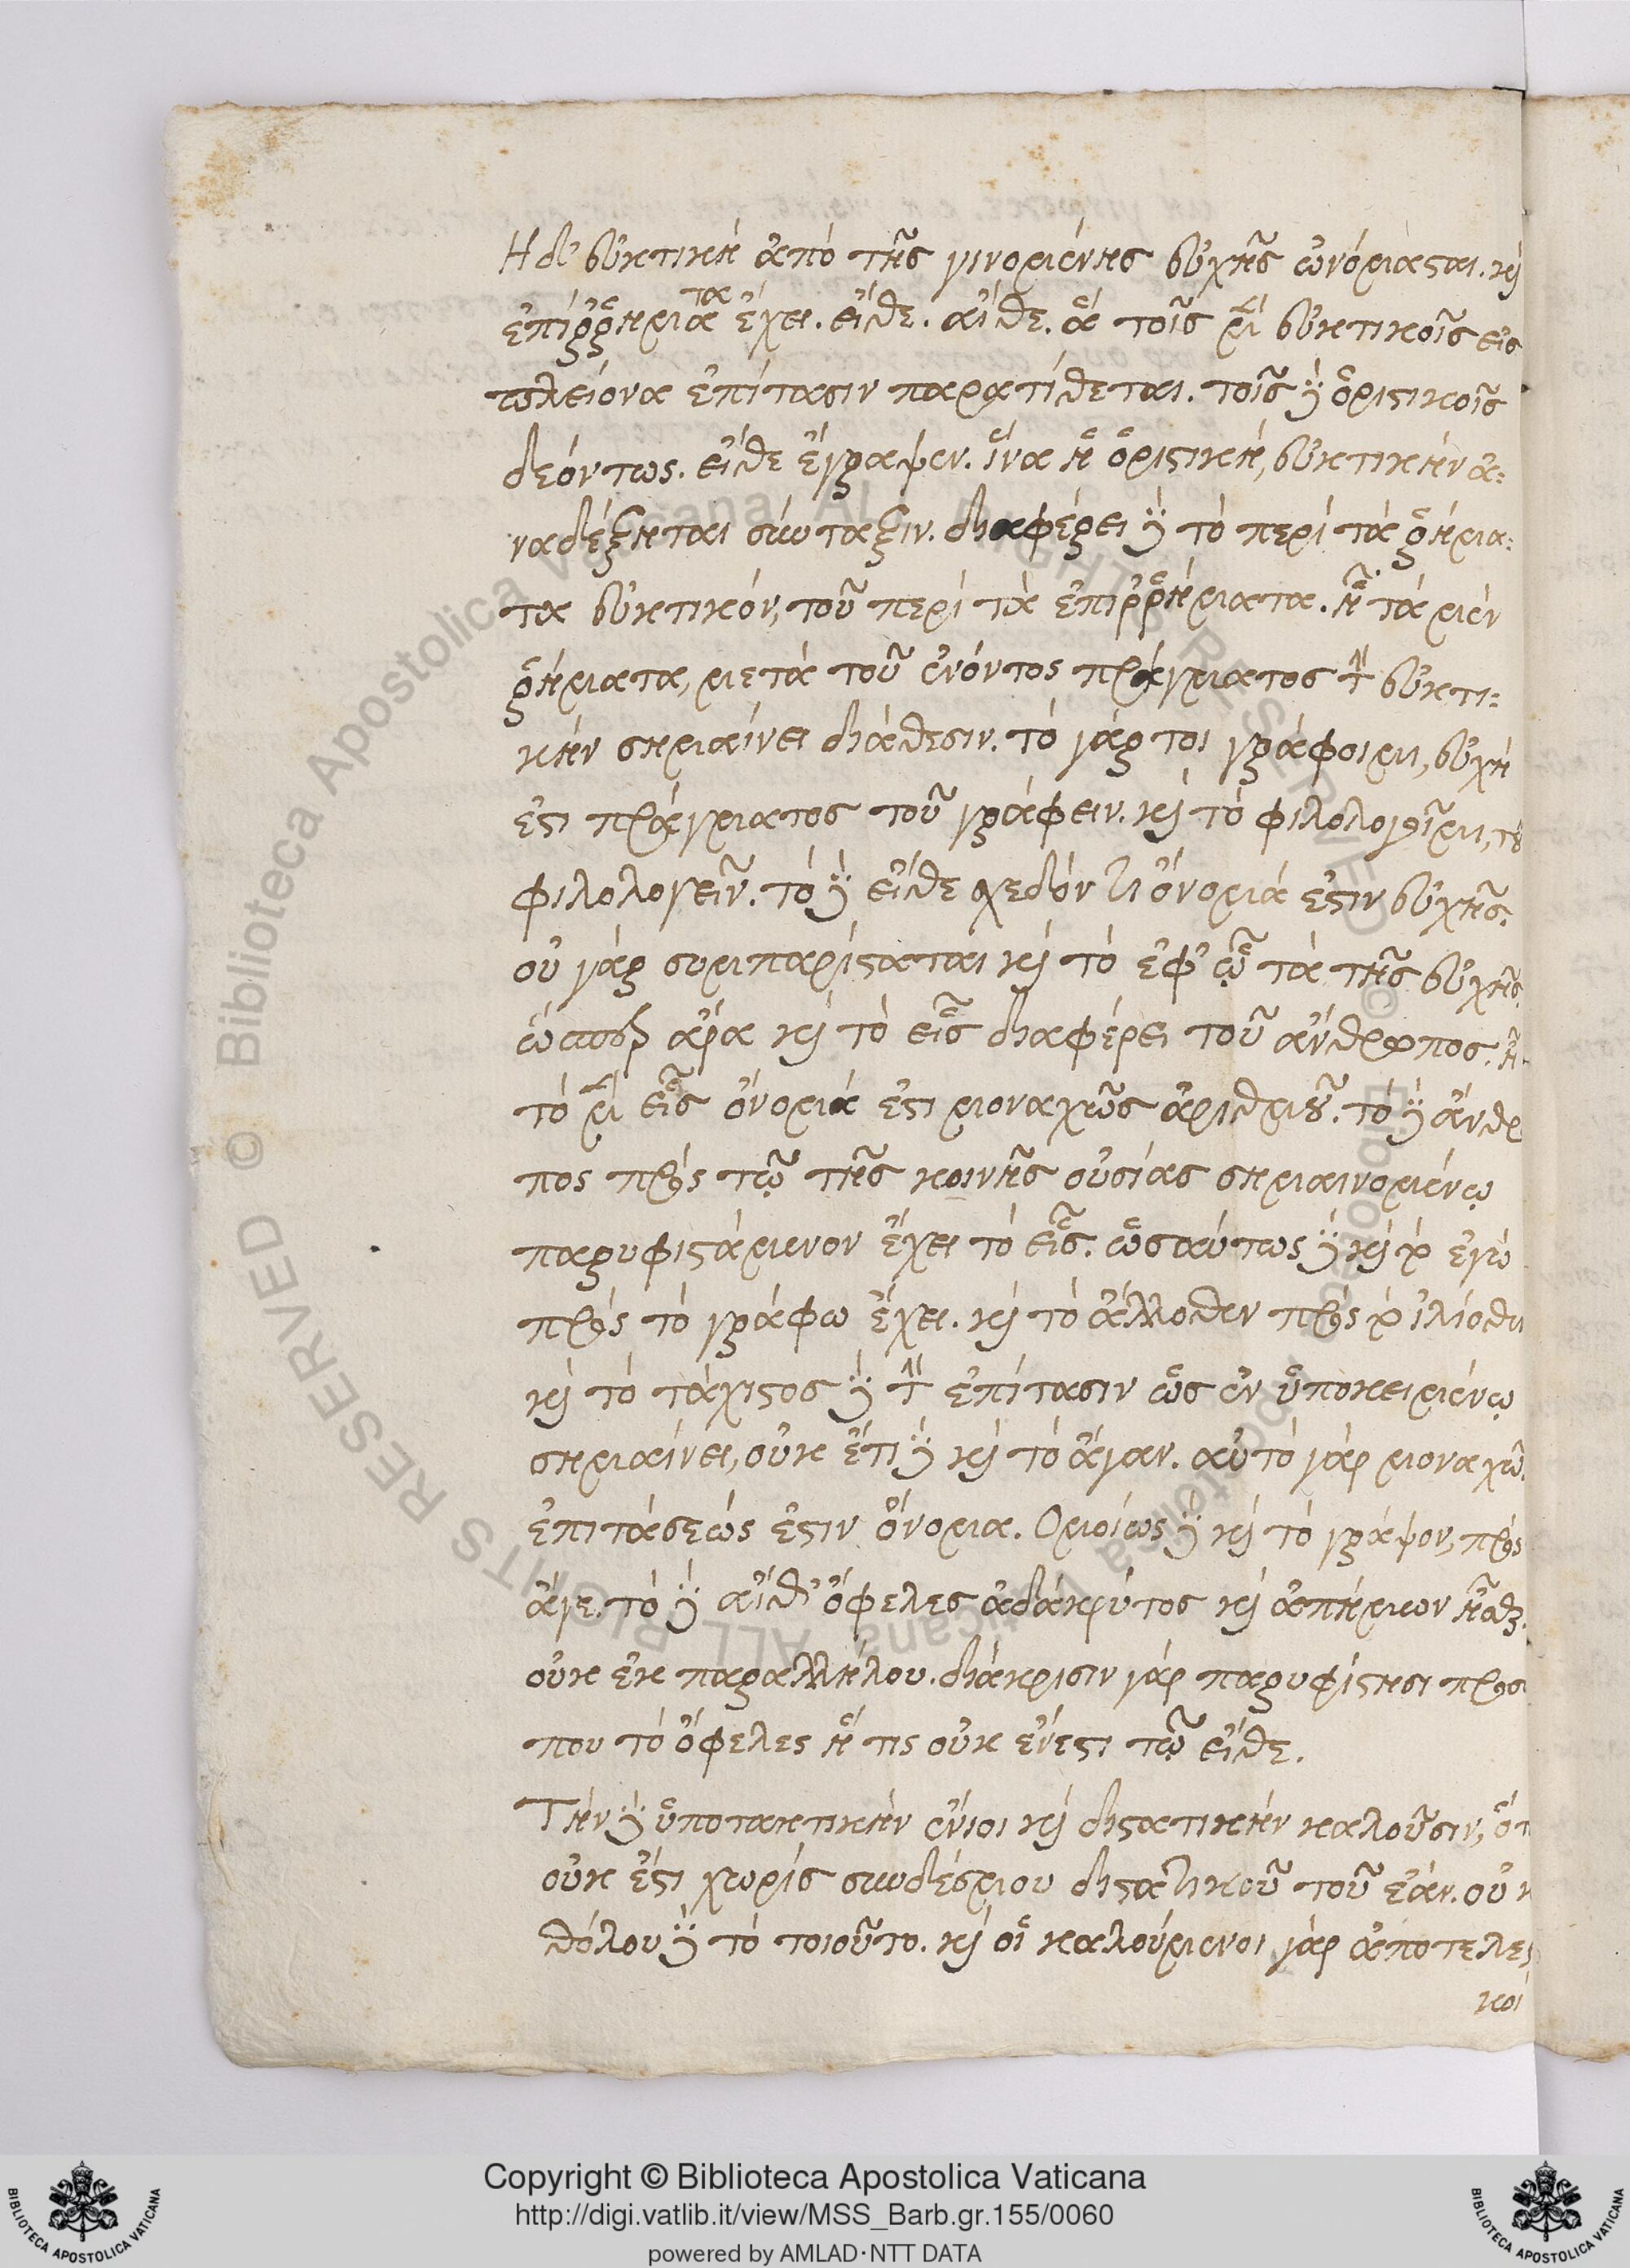 Ἡ δ' εὐκτικὴ ἀπὸ τῆς γινομένης εὐχῆς ὠνόμασται. καὶ
ἐπιῤῥήματα ἔχει. εἴθε. αἴθε. ἃ τοῖς μὲν εὐκτικοῖς εἰς
πλείονα ἐπίτασιν παρατίθεται. τοῖς δὲ ὁριστικοῖς
δεόντως. εἴθε ἔγραψεν. ἵνα ἡ ὁριστικὴ, εὐκτικὴν ἀ-
ναδέξηται σύνταξιν. διαφέρει δὲ τὸ περὶ τὰ ῥήμα-
τα εὐκτικόν, τοῦ περὶ τὰ ἐπιῤῥήματα. ᾗ τὰ μὲν
ῥήματα, μετὰ τοῦ ἐνόντος πράγματος τὴν εὐκτι-
κὴν σημαίνει διάθεσιν. τὸ γάρ τοι γράφοιμι, εὐχή
ἐστι πράγματος τοῦ γράφειν. καὶ τὸ φιλολογοῖμι, τοῦ
φιλολογεῖν. τὸ δὲ εἴθε σχεδόν τι ὄνομά ἐστιν εὐχῆς.
οὐ γὰρ συμπαρίσταται καὶ τὸ ἐφ' ᾧ τὰ τῆς εὐχῆς.
ὥσπερ ἄρα καὶ τὸ εἷς διαφέρει τοῦ ἄνθρωπος. ᾗ
τὸ μὲν εἷς ὄνομά ἐστι μοναχῶς ἀριθμοῦ. τὸ δὲ ἄνθρω
πος πρὸς τῷ τῆς κοινῆς οὐσίας σημαινομένῳ
παρυφιστάμενον ἔχει τὸ εἷς. ὡσαύτως δὲ καὶ τὸ ἐγὼ
πρὸς τὸ γράφω ἔχει. καὶ τὸ ἄλλοθεν πρὸς τὸ ἰλιόθεν
καὶ τὸ τάχιστος δὲ τὴν ἐπίτασιν ὡς ἐν ὑποκειμένῳ
σημαίνει, οὐκ ἔτι δὲ καὶ τὸ ἄγαν. αὐτὸ γὰρ μοναχῶς
ἐπιτάσεώς ἐστιν ὄνομα. Ὁμοίως δὲ καὶ τὸ γράψον, πρὸς
ἄγε. τὸ δὲ αἴθ' ὄφελες ἀδάκρυτος καὶ ἀπήμων ἧσθ.
οὐκ ἐκ παραλλήλου. διάκρισιν γὰρ παρυφίστησι προσ
που τὸ ὄφελες ἥ τις οὐκ ἔνεστι τῷ εἴθε.
Τὴν δὲ ὑποτακτικὴν ἔνιοι καὶ διστατικὴν καλοῦσιν, ὅτι
οὐκ ἔστι χωρὶς συνδέσμου διστατικοῦ τοῦ ἐάν. οὐ κ
θόλου δὲ τὸ τοιοῦτο. καὶ οἱ καλούμενοι γὰρ ἀποτελεσ
κοὶ
Copyright © Biblioteca Apostolica Vaticana
http://digi.vatlib.it/view/MSS_Barb.gr.155/0060
powered by AMLAD·NTT DATA